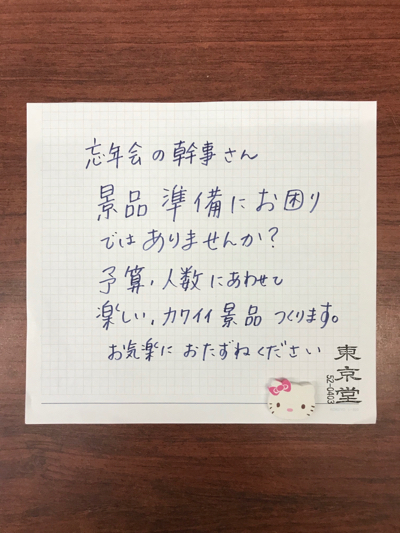 忘年会の幹事さん
景品準備にお困り
ではありませんか?
予算,人数にあわせて
楽しい,カワイイ景品つくります。
お気楽におたずねください
東京堂
52-0403